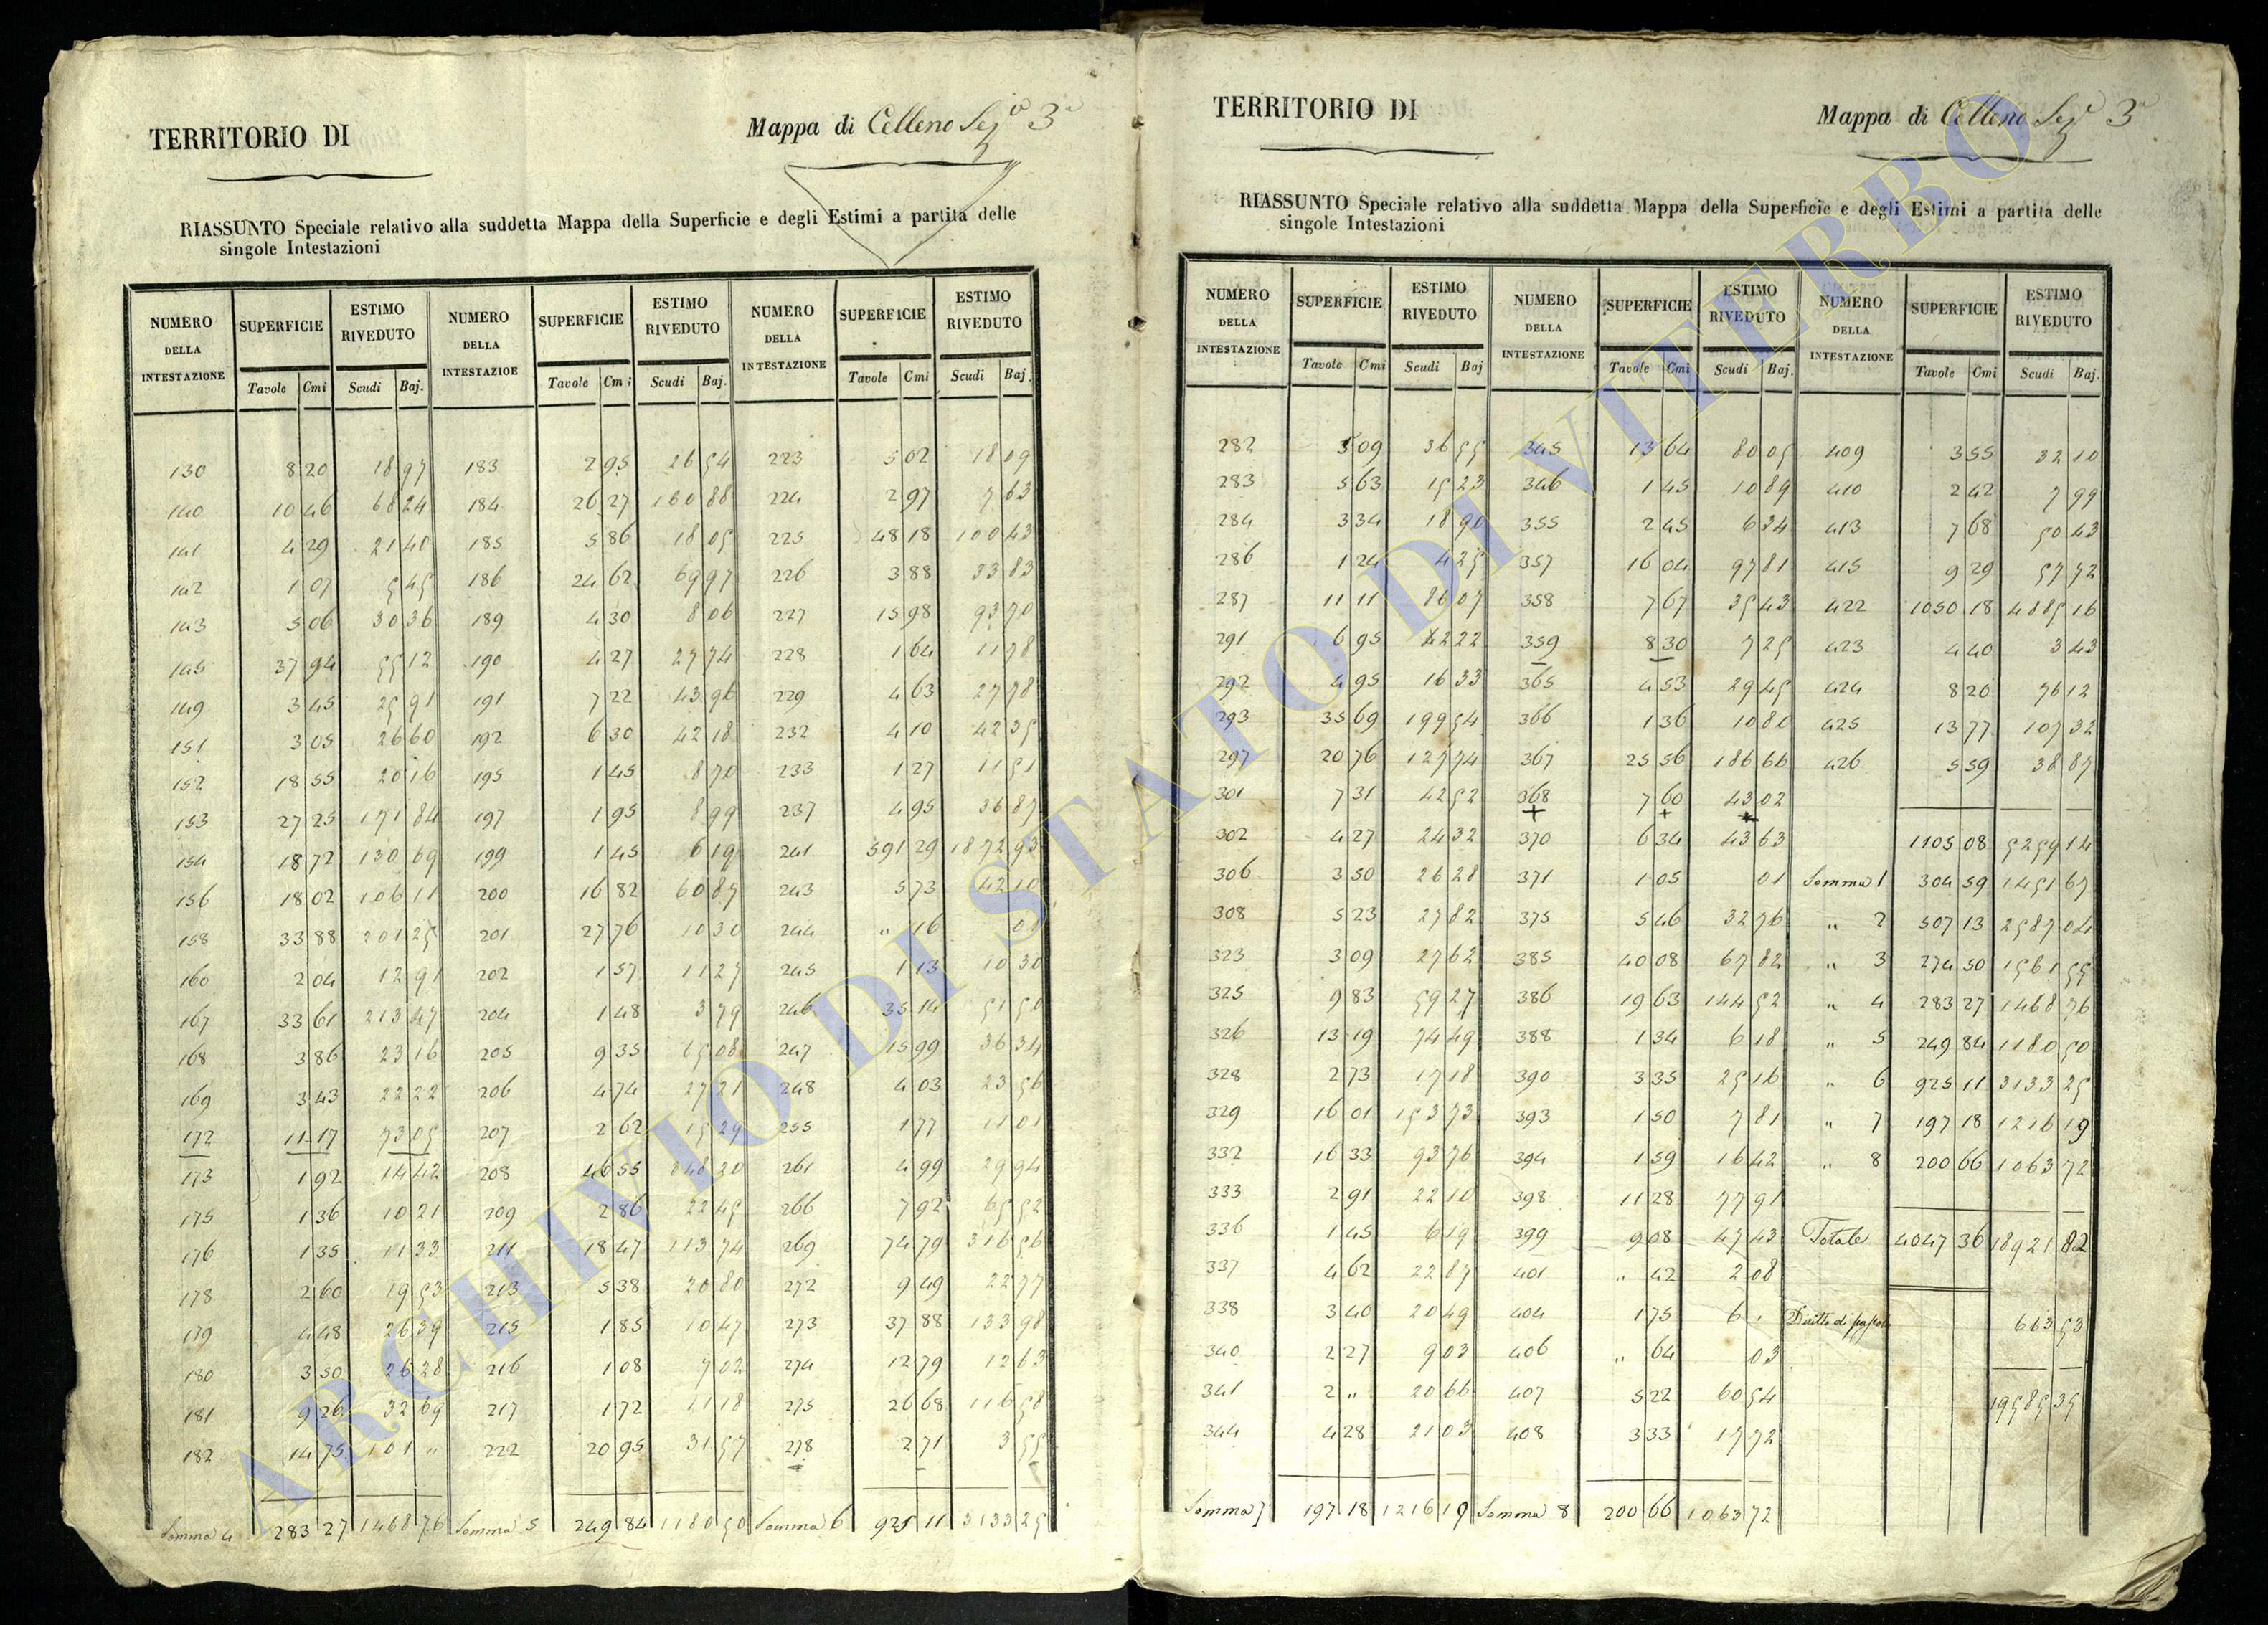 TERRITORIO DI
Mappa di Celleno Sez.e 3a
RIASSUNTO Speciale relativo alla suddetta Mappa della Superficie e degli Estimi a partita delle
singole Intestazioni
NUMERO DELLA INTESTAZIONE SUPERFICIE ESTIMO RIVEDUTO NUMERO DELLA INTESTAZIOE SUPERFICIE ESTIMO RIVEDUTO NUMERO DELLA INTESTAZIONE SUPERFICIE ESTIMO RIVEDUTO
Tavole Cmi Scudi Baj. Tavole Cmi Scudi Baj. Tavole Cmi Scudi Baj.
130 8 20 18 97 183 2 95 26 54 223 5 02 18 09
140 10 46 68 24 184 26 27 160 88 224 2 97 7 63
141 4 29 21 40 185 5 86 18 05 225 48 18 100 43
142 1 07 5 45 186 24 62 69 97 226 3 88 33 83
143 5 06 30 36 189 4 30 8 06 227 15 98 93 70
145 37 94 55 12 190 4 27 27 74 228 1 64 11 78
149 3 45 25 91 191 7 22 43 96 229 4 63 27 78
151 3 05 26 60 192 6 30 42 18 232 4 10 42 35
152 18 55 20 16 195 1 45 8 70 233 1 27 11 51
153 27 25 171 84 197 1 95 8 99 237 4 95 36 87
154 18 72 130 69 199 1 45 6 19 241 591 29 1872 93
156 18 02 106 11 200 16 82 60 87 243 5 73 42 10
158 33 88 201 25 201 27 76 10 30 244 " 16 01
160 2 04 12 91 202 1 57 11 27 245 1 13 10 30
167 33 61 213 47 204 1 48 3 79 246 35 14 51 50
168 3 86 23 16 205 9 35 65 08 247 15 99 36 34
169 3 43 22 22 206 4 74 27 21 248 4 03 23 56
172 11 17 73 05 207 2 62 15 29 255 1 77 11 01
173 1 92 14 42 208 46 55 248 20 261 4 99 29 94
175 1 36 10 21 209 2 86 22 45 266 7 92 65 52
176 1 35 11 33 211 18 47 113 74 269 74 79 316 56
178 2 60 19 53 213 5 38 20 80 272 9 49 22 77
179 4 48 26 39 215 1 85 10 47 273 37 88 133 98
180 3 50 26 28 216 1 08 7 02 274 12 79 12 63
181 9 26 32 69 217 1 72 11 18 275 26 68 116 58
182 14 75 101 " 222 20 95 31 57 278 2 71 3 55
Somma 4 283 27 1468 76 Somma 5 249 84 1180 50 Somma 6 925 11 3133 25
TERRITORIO DI
Mappa di Celleno Sez.e 3a
RIASSUNTO Speciale relativo alla suddetta Mappa della Superficie e degli Estimi a partita delle
singole Intestazioni
NUMERO DELLA INTESTAZIONE SUPERFICIE ESTIMO RIVEDUTO NUMERO DELLA INTESTAZIONE SUPERFICIE ESTIMO RIVEDUTO NUMERO DELLA INTESTAZIONE SUPERFICIE ESTIMO RIVEDUTO
Tavole Cmi Scudi Baj Tavole Cmi Scudi Baj. Tavole Cmi Scudi Baj.
282 5 09 36 55 345 13 64 80 05 409 3 55 32 10
283 5 63 15 23 346 1 45 10 89 410 2 42 7 99
284 3 34 18 90 355 2 45 6 24 413 7 68 50 43
286 1 24 4 25 357 16 04 97 81 415 9 29 57 72
287 11 11 86 07 358 7 67 35 43 422 1050 18 4885 16
291 6 95 42 22 359 8 30 7 25 423 4 40 3 43
292 4 95 16 33 365 4 53 29 45 424 8 20 76 12
293 35 69 199 54 366 1 36 10 80 425 13 77 107 32
297 20 76 127 74 367 25 56 186 66 426 5 59 38 87
301 7 31 42 52 368 7 60 43 02
302 4 27 24 32 370 6 34 43 63 1105 08 5259 14
306 3 50 26 28 371 1 05 01 Somma 1 304 59 1451 67
308 5 23 27 82 375 5 46 32 76 " 2 507 13 2587 04
323 3 09 27 62 385 40 08 67 82 " 3 274 50 1561 55
325 9 83 59 27 386 19 63 144 52 " 4 283 27 1468 76
326 13 19 74 49 388 1 34 6 18 " 5 249 84 1180 50
328 2 73 17 18 390 3 35 25 16 " 6 925 11 3133 25
329 16 01 153 73 393 1 50 7 81 " 7 197 18 1216 19
332 16 33 93 76 394 1 59 16 42 " 8 200 66 1063 72
333 2 91 22 10 398 11 28 77 91
336 1 45 6 19 399 9 08 47 43 Totale 4047 36 18921 82
337 4 62 22 87 401 " 42 2 08
338 3 40 20 49 404 1 75 6 . Diritto di pascolo 663 53
340 2 27 9 03 406 " 64 03
341 2 " 20 66 407 5 22 60 54 19585 35
344 4 28 21 03 408 3 33 17 72
Somma 7 197 18 1216 19 Somma 8 200 66 1063 72
ARCHIVIO DI STATO DI VITERBO